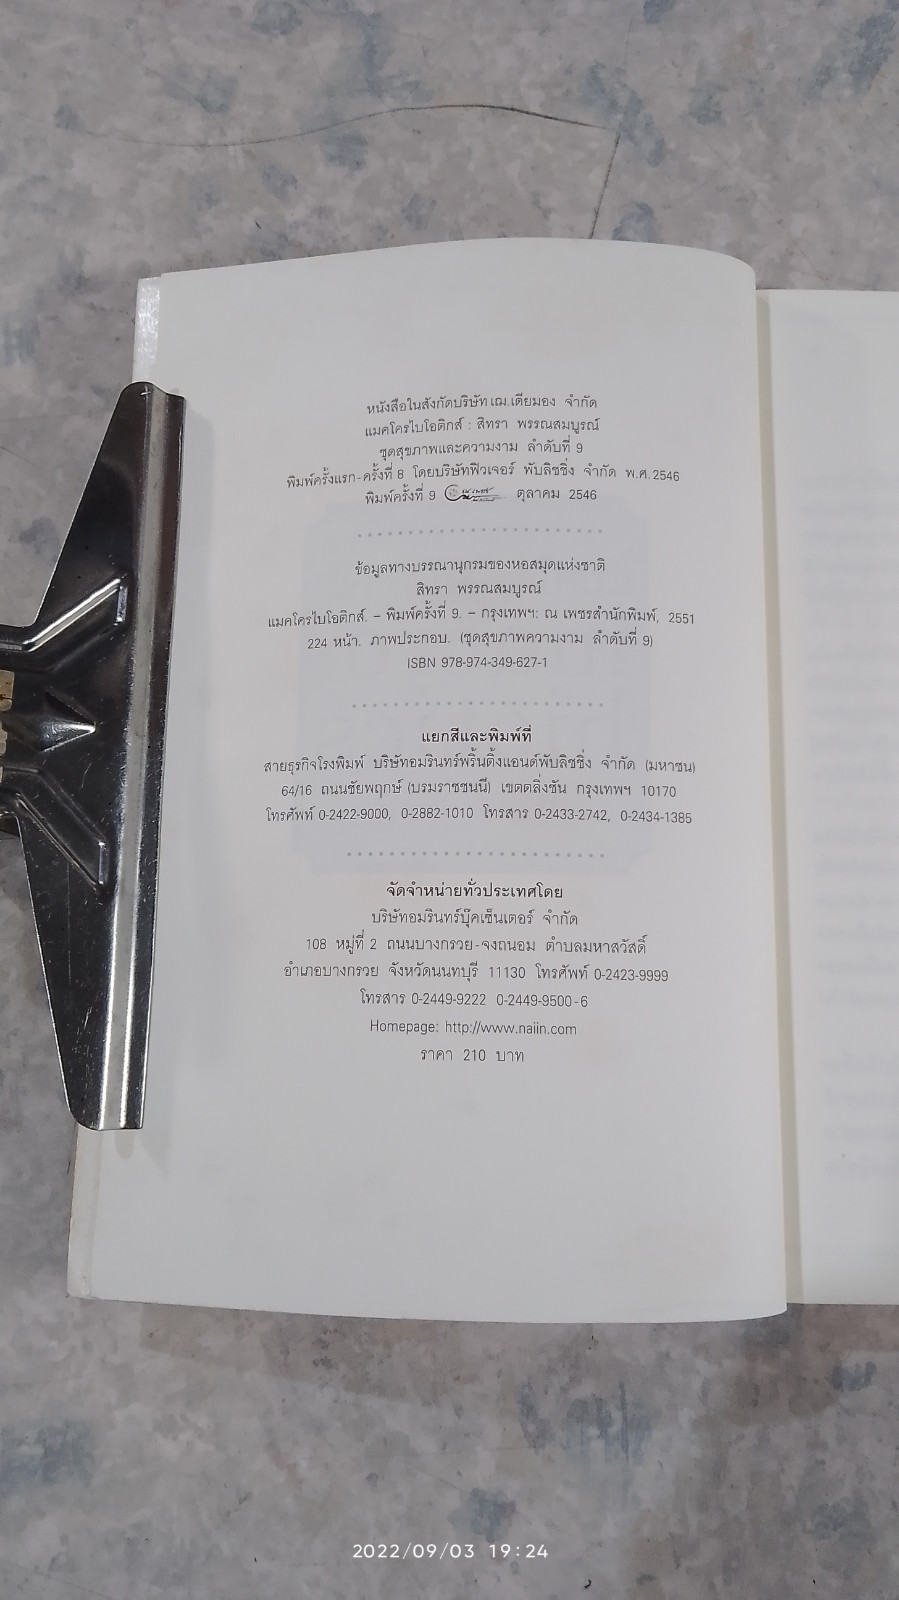 หนังสือในสังกัดบริษัท เฌ.เดียมอง จำกัด
แมคโครไบโอติกส์ : สิทรา พรรณสมบูรณ์
ชุดสุขภาพและความงาม ลำดับที่ 9
พิมพ์ครั้งแรก-ครั้งที่ 8 โดยบริษัทฟิวเจอร์ พับลิชชิ่ง จำกัด พ.ศ.2546
พิมพ์ครั้งที่ 9 ตุลาคม 2546
ข้อมูลทางบรรณานุกรมของหอสมุดแห่งชาติ
สิทรา พรรณสมบูรณ์
แมคโครไบโอติกส์. – พิมพ์ครั้งที่ 9. – กรุงเทพฯ: ณ เพชรสำนักพิมพ์, 2551
224 หน้า. ภาพประกอบ. (ชุดสุขภาพความงาม ลำดับที่ 9)
ISBN 978-974-349-627-1
แยกสีและพิมพ์ที่
สายธุรกิจโรงพิมพ์ บริษัทอมรินทร์พริ้นติ้งแอนด์พับลิชชิ่ง จำกัด (มหาชน)
64/16 ถนนชัยพฤกษ์ (บรมราชชนนี) เขตตลิ่งชัน กรุงเทพฯ 10170
โทรศัพท์ 0-2422-9000, 0-2882-1010 โทรสาร 0-2433-2742, 0-2434-1385
จัดจำหน่ายทั่วประเทศโดย
บริษัทอมรินทร์บุ๊คเซ็นเตอร์ จำกัด
108 หมู่ที่ 2 ถนนบางกรวย-จงถนอม ตำบลมหาสวัสดิ์
อำเภอบางกรวย จังหวัดนนทบุรี 11130 โทรศัพท์ 0-2423-9999
โทรสาร 0-2449-9222 0-2449-9500-6
Homepage: http://www.naiin.com
ราคา 210 บาท
2022/09/03 19:24